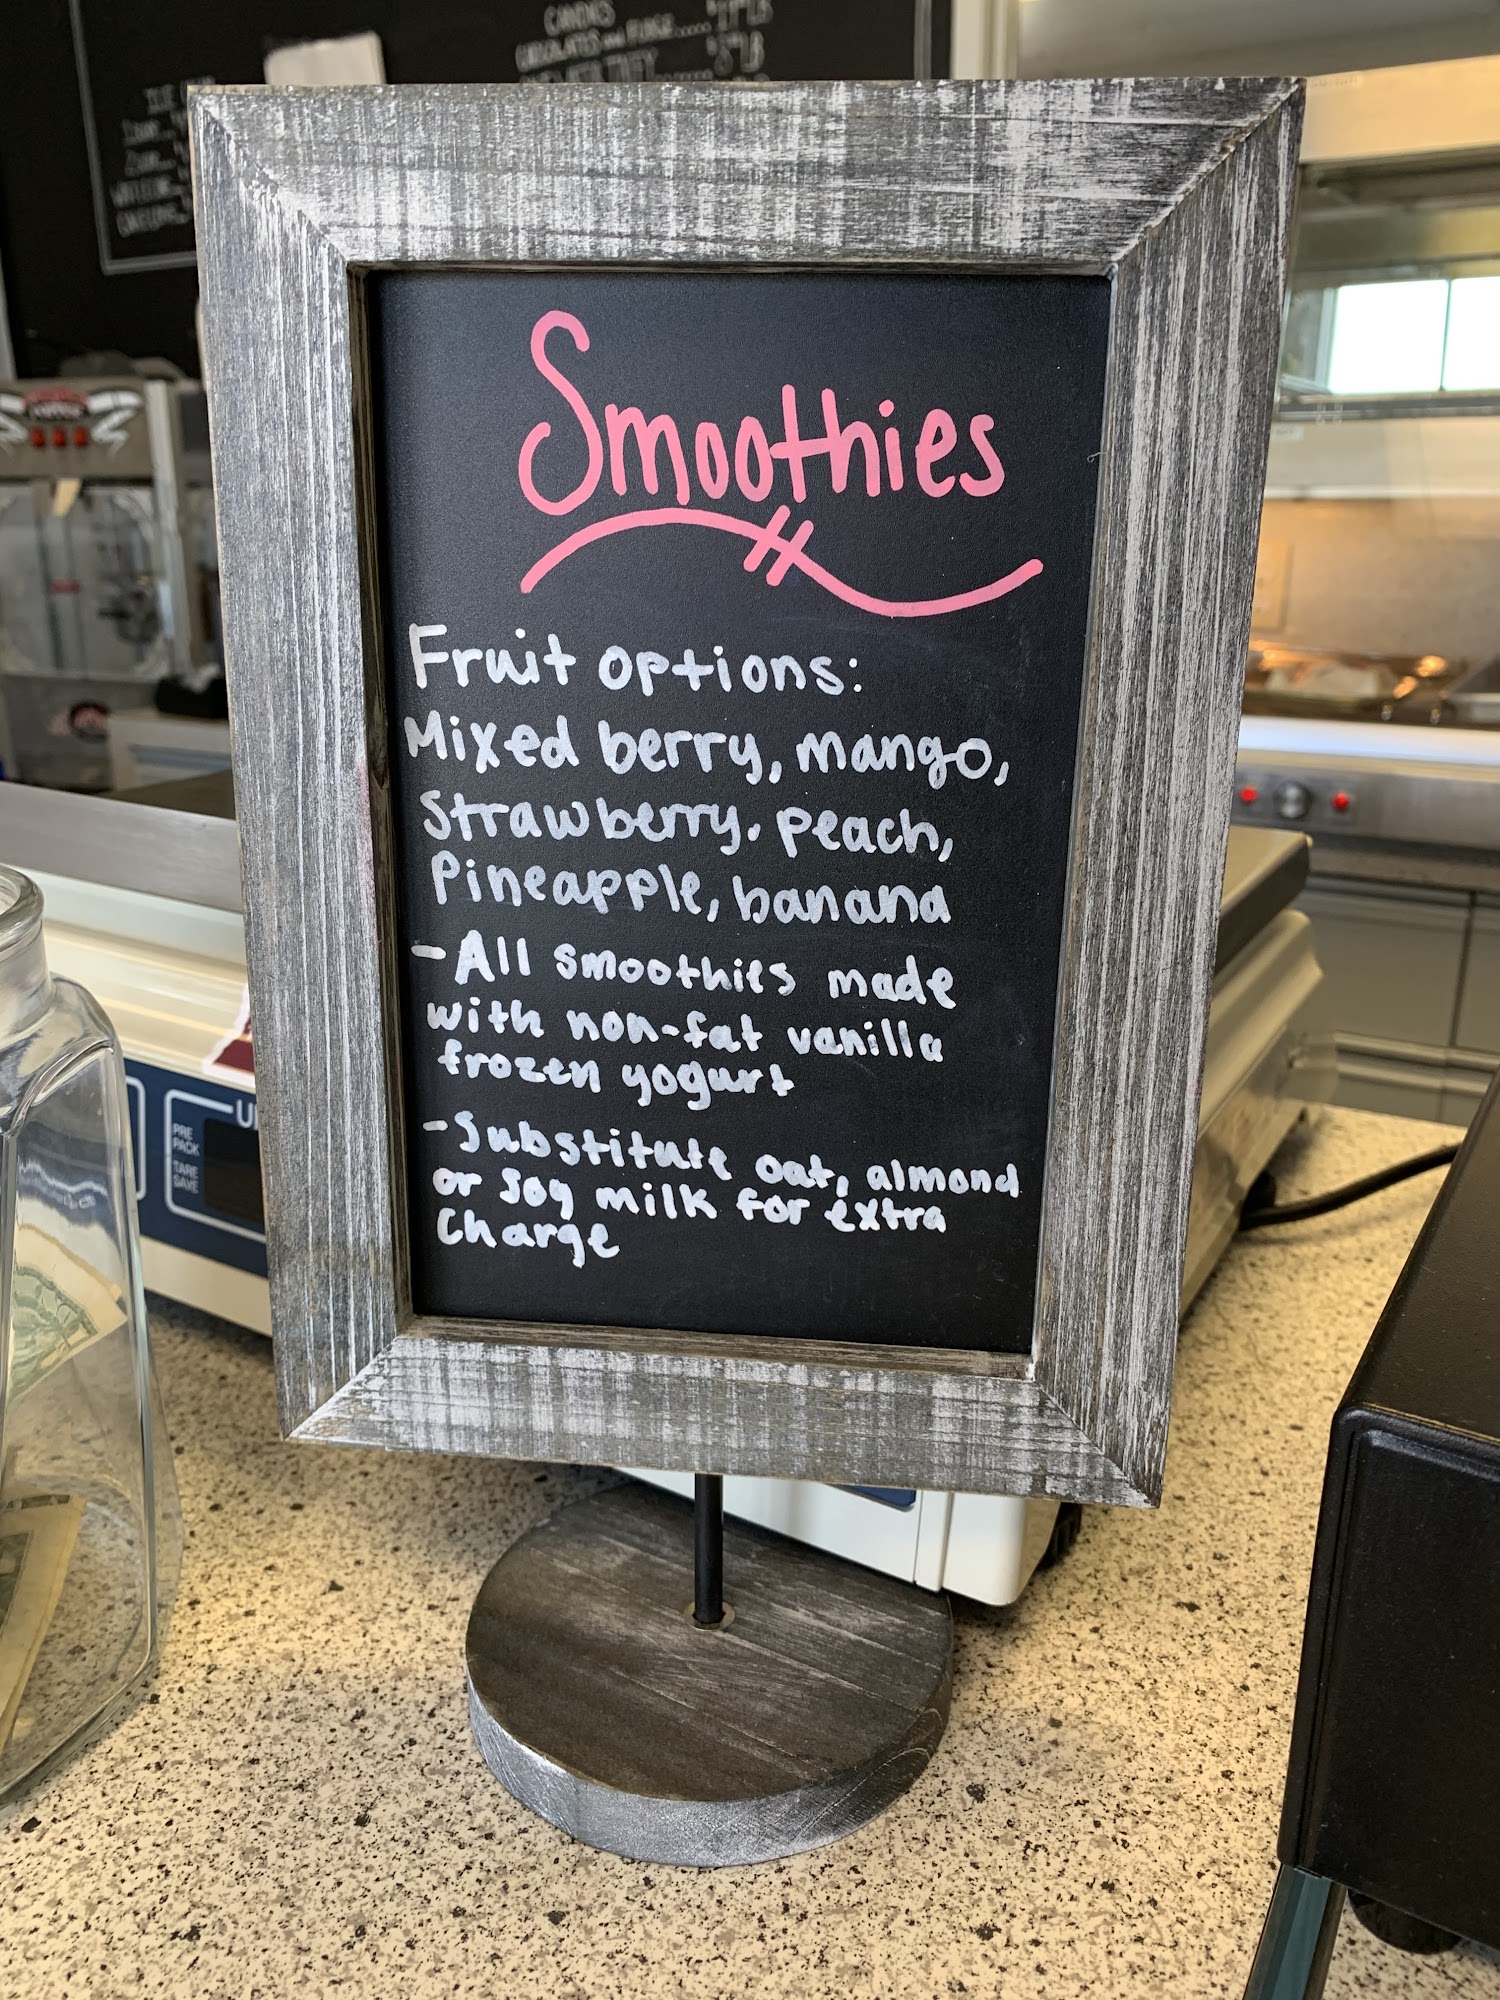 CANDIES
CHOCOLATES AND FUDGE.....
LB
Smoothies
Fruit options:
Mixed berry, mango,
Strawberry, peach,
Pineapple, banana
-All smoothies made
with non-fat vanilla
frozen yogurt
-Substitute oat, almond
or soy milk for extra
Charge
PRE
PACK
TARE
SAVE